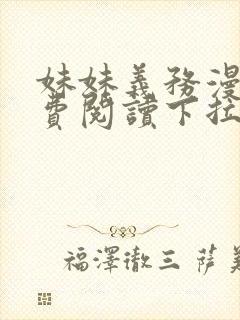 妹妹義務漫
費閱讀下拉
福澤徹三 薩美